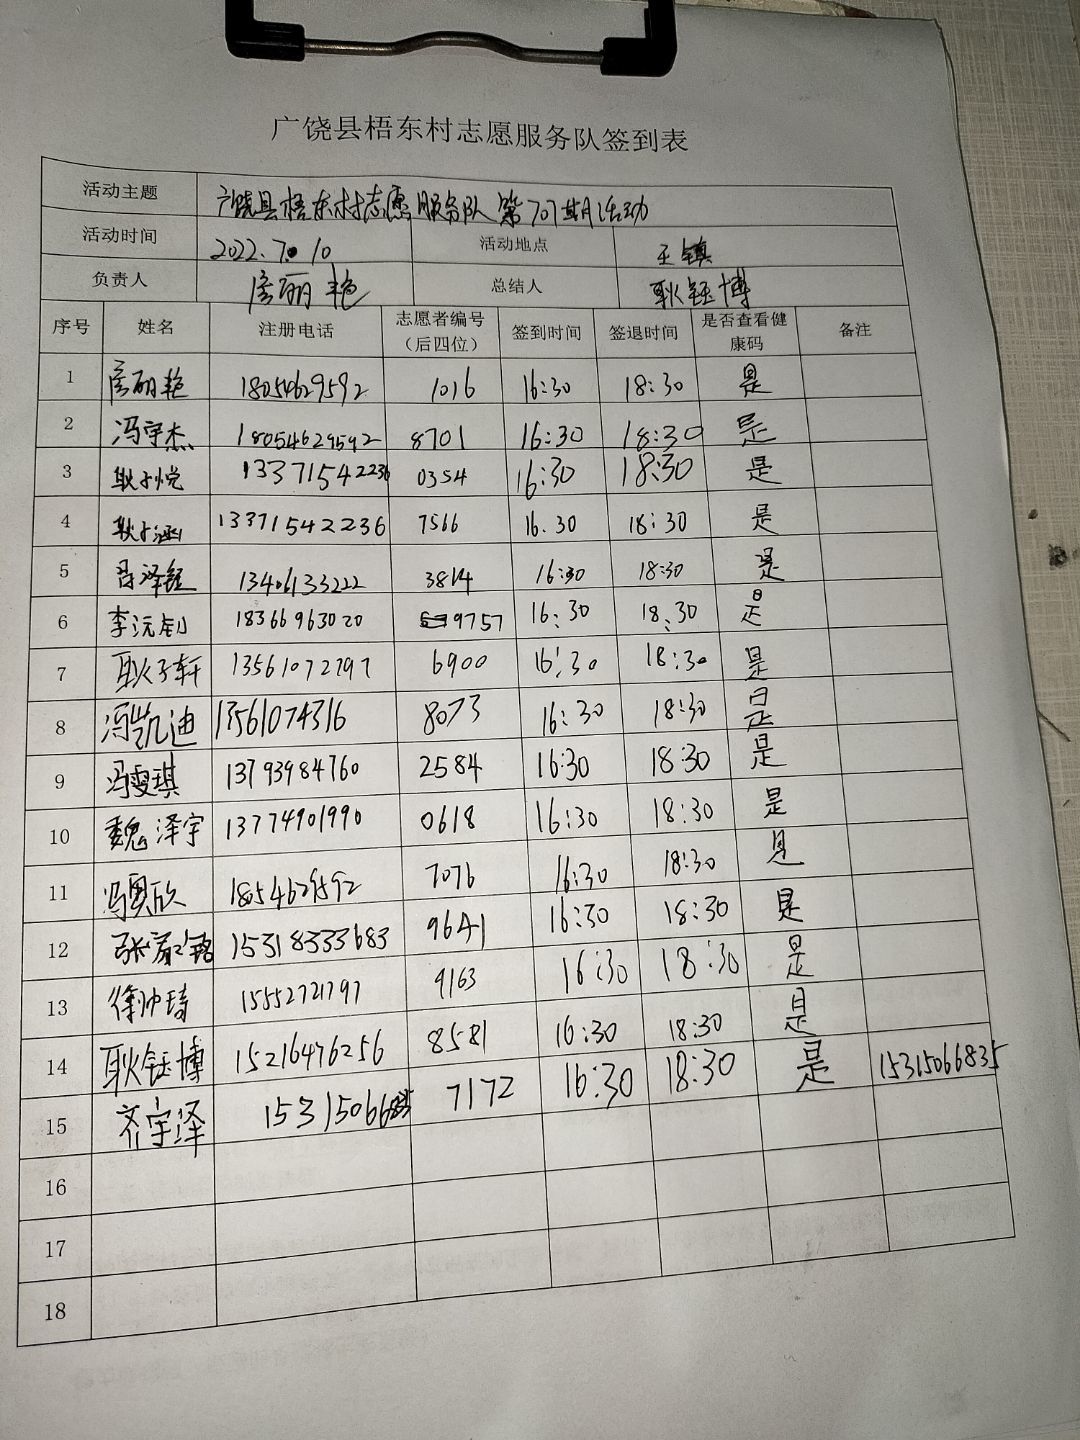 广饶县梧东村志愿服务队签到表
活动主题 广饶县梧东村志愿服务队第707期活动
活动时间 2022.7.10 活动地点 王镇
负责人 房丽艳 总结人 耿钰博
序号 姓名 注册电话 志愿者编号（后四位） 签到时间 签退时间 是否查看健康码 备注
1 房丽艳 18054629592 1016 16:30 18:30 是
2 冯宇杰 18054629592 8701 16:30 18:30 是
3 耿子悦 13371542236 0354 16:30 18:30 是
4 耿子涵 13371542236 7566 16.30 18:30 是
5 泽钰 13406133222 3814 16:30 18:30 是
6 李沅钊 18366963020 9757 16:30 18:30 是
7 耿子轩 13561072797 6900 16:30 18:30 是
8 冯凯迪 13561074316 8073 16:30 18:30 是
9 冯雯琪 13793984760 2584 16:30 18:30 是
10 魏泽宇 13774901990 0618 16:30 18:30 是
11 冯奥欣 18054629592 7076 16:30 18:30 是
12 张 15318333683 9641 16:30 18:30 是
13 徐帅琦 15552721797 9163 16:30 18:30 是
14 耿钰博 15216476256 8581 16:30 18:30 是
15 齐宇泽 15315066835 7172 16:30 18:30 是 15315066835
16
17
18